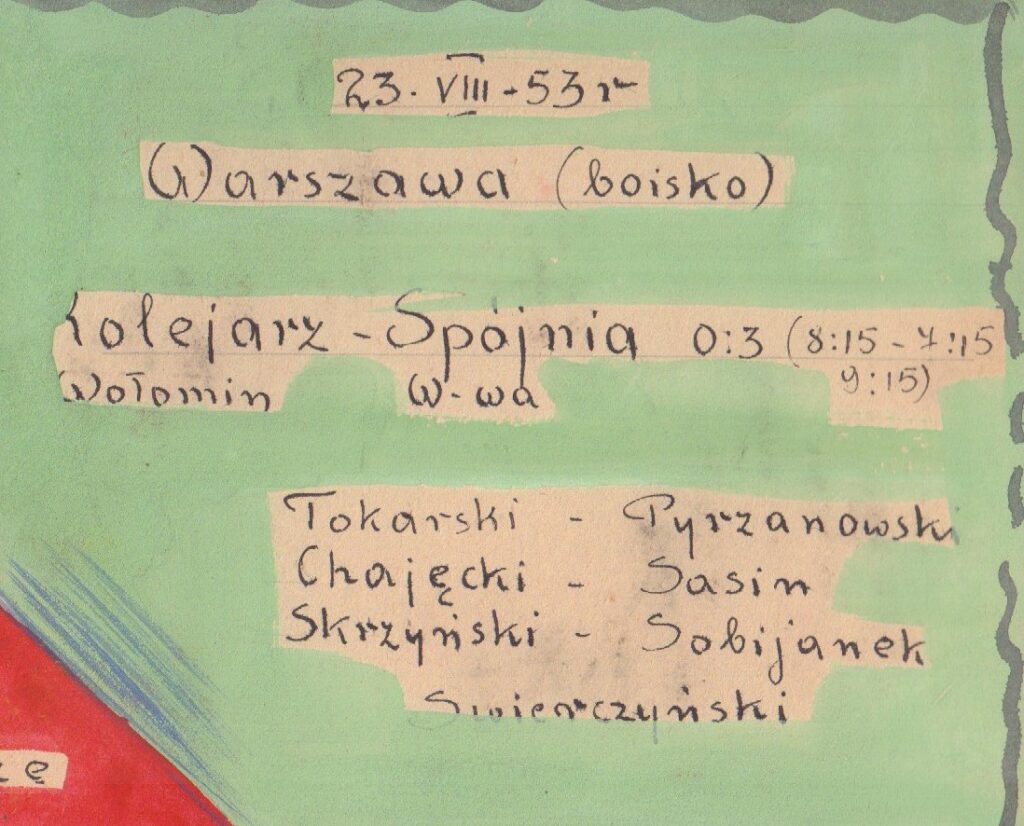 23. VIII - 53 r
Warszawa (boisko)
Kolejarz - Spójnia 0:3 (8:15 - 7:15
Wołomin W-wa 9:15)
Tokarski - Pyrzanowski
Chajęcki - Sasin
Skrzyński - Sobijanek
Swierczyński